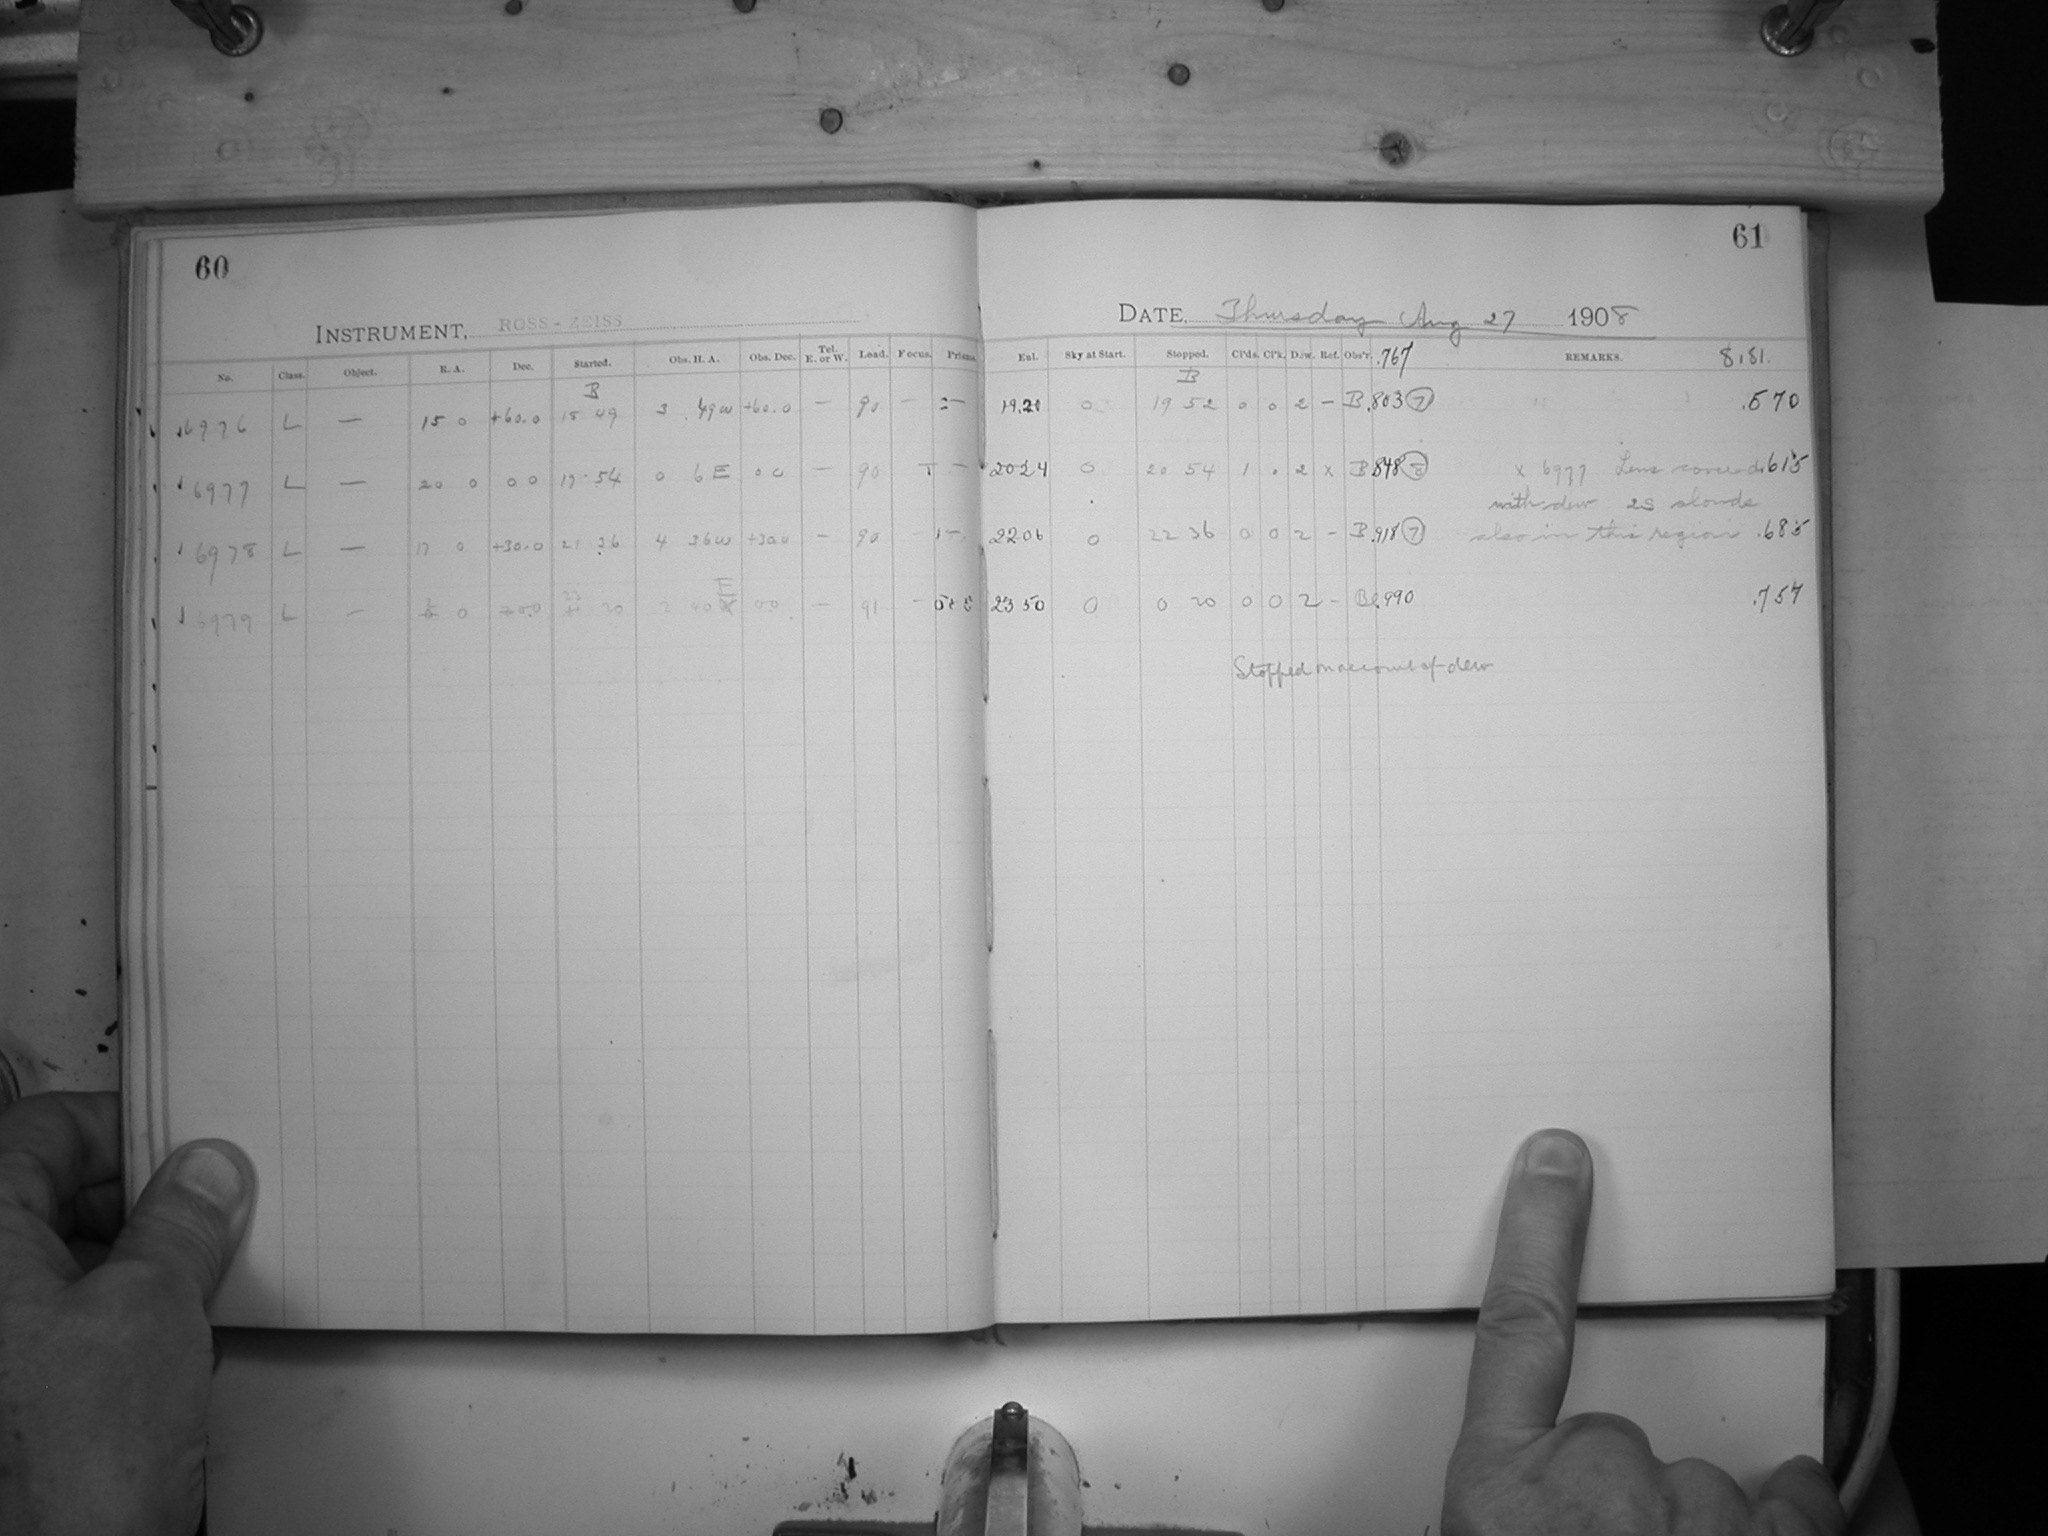 60
61
INSTRUMENT, ROSS-ZEISS
DATE, Thursday Aug 27 1908
No. Class. Object. R. A. Dec. Started. Obs. H. A. Obs. Dec. Tel. E. or W. Load. Focus. Prisms. Ent. Sky at Start. Stopped. Cl'ds. Cl'k. Dew. Ref. Obs'r. .767 REMARKS. 8181.
B B
6976 L — 15 0 +60.0 18 49 3 49W +60.0 — 90 — 19.20 0 19 52 0 0 2 — B .803 7 .570
6977 L — 20 0 0 0 19 54 0 6 E 0 0 — 90 — 2024 0 20 54 1 0 2 x B .848 8 x 6977 Lens covered .615
with dew
6978 L — 17 0 +30.0 21 36 4 36W +30.0 — 90 — 2206 0 22 36 0 0 2 — B .918 7 also in this region .685
6979 L — 0 23 20 2 40 E 00 — 91 — 23 50 0 0 20 0 0 2 — .990 .757
Stopped on account of dew